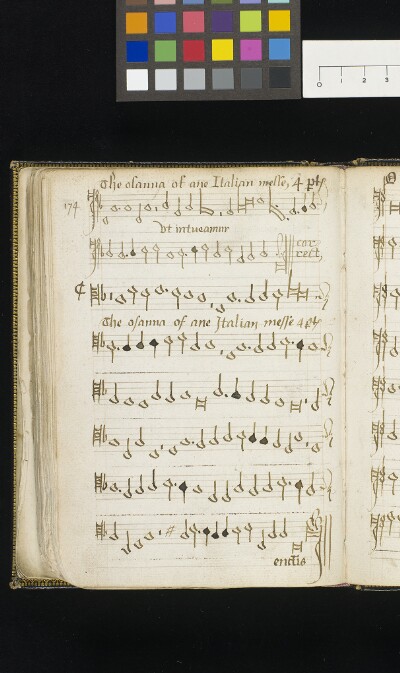 The osanna of ane Italian messe, 4 pts
174
Vt intueamur
cor
rect
The osanna of ane Italian messe 4 pts
endis
0 1 2 3